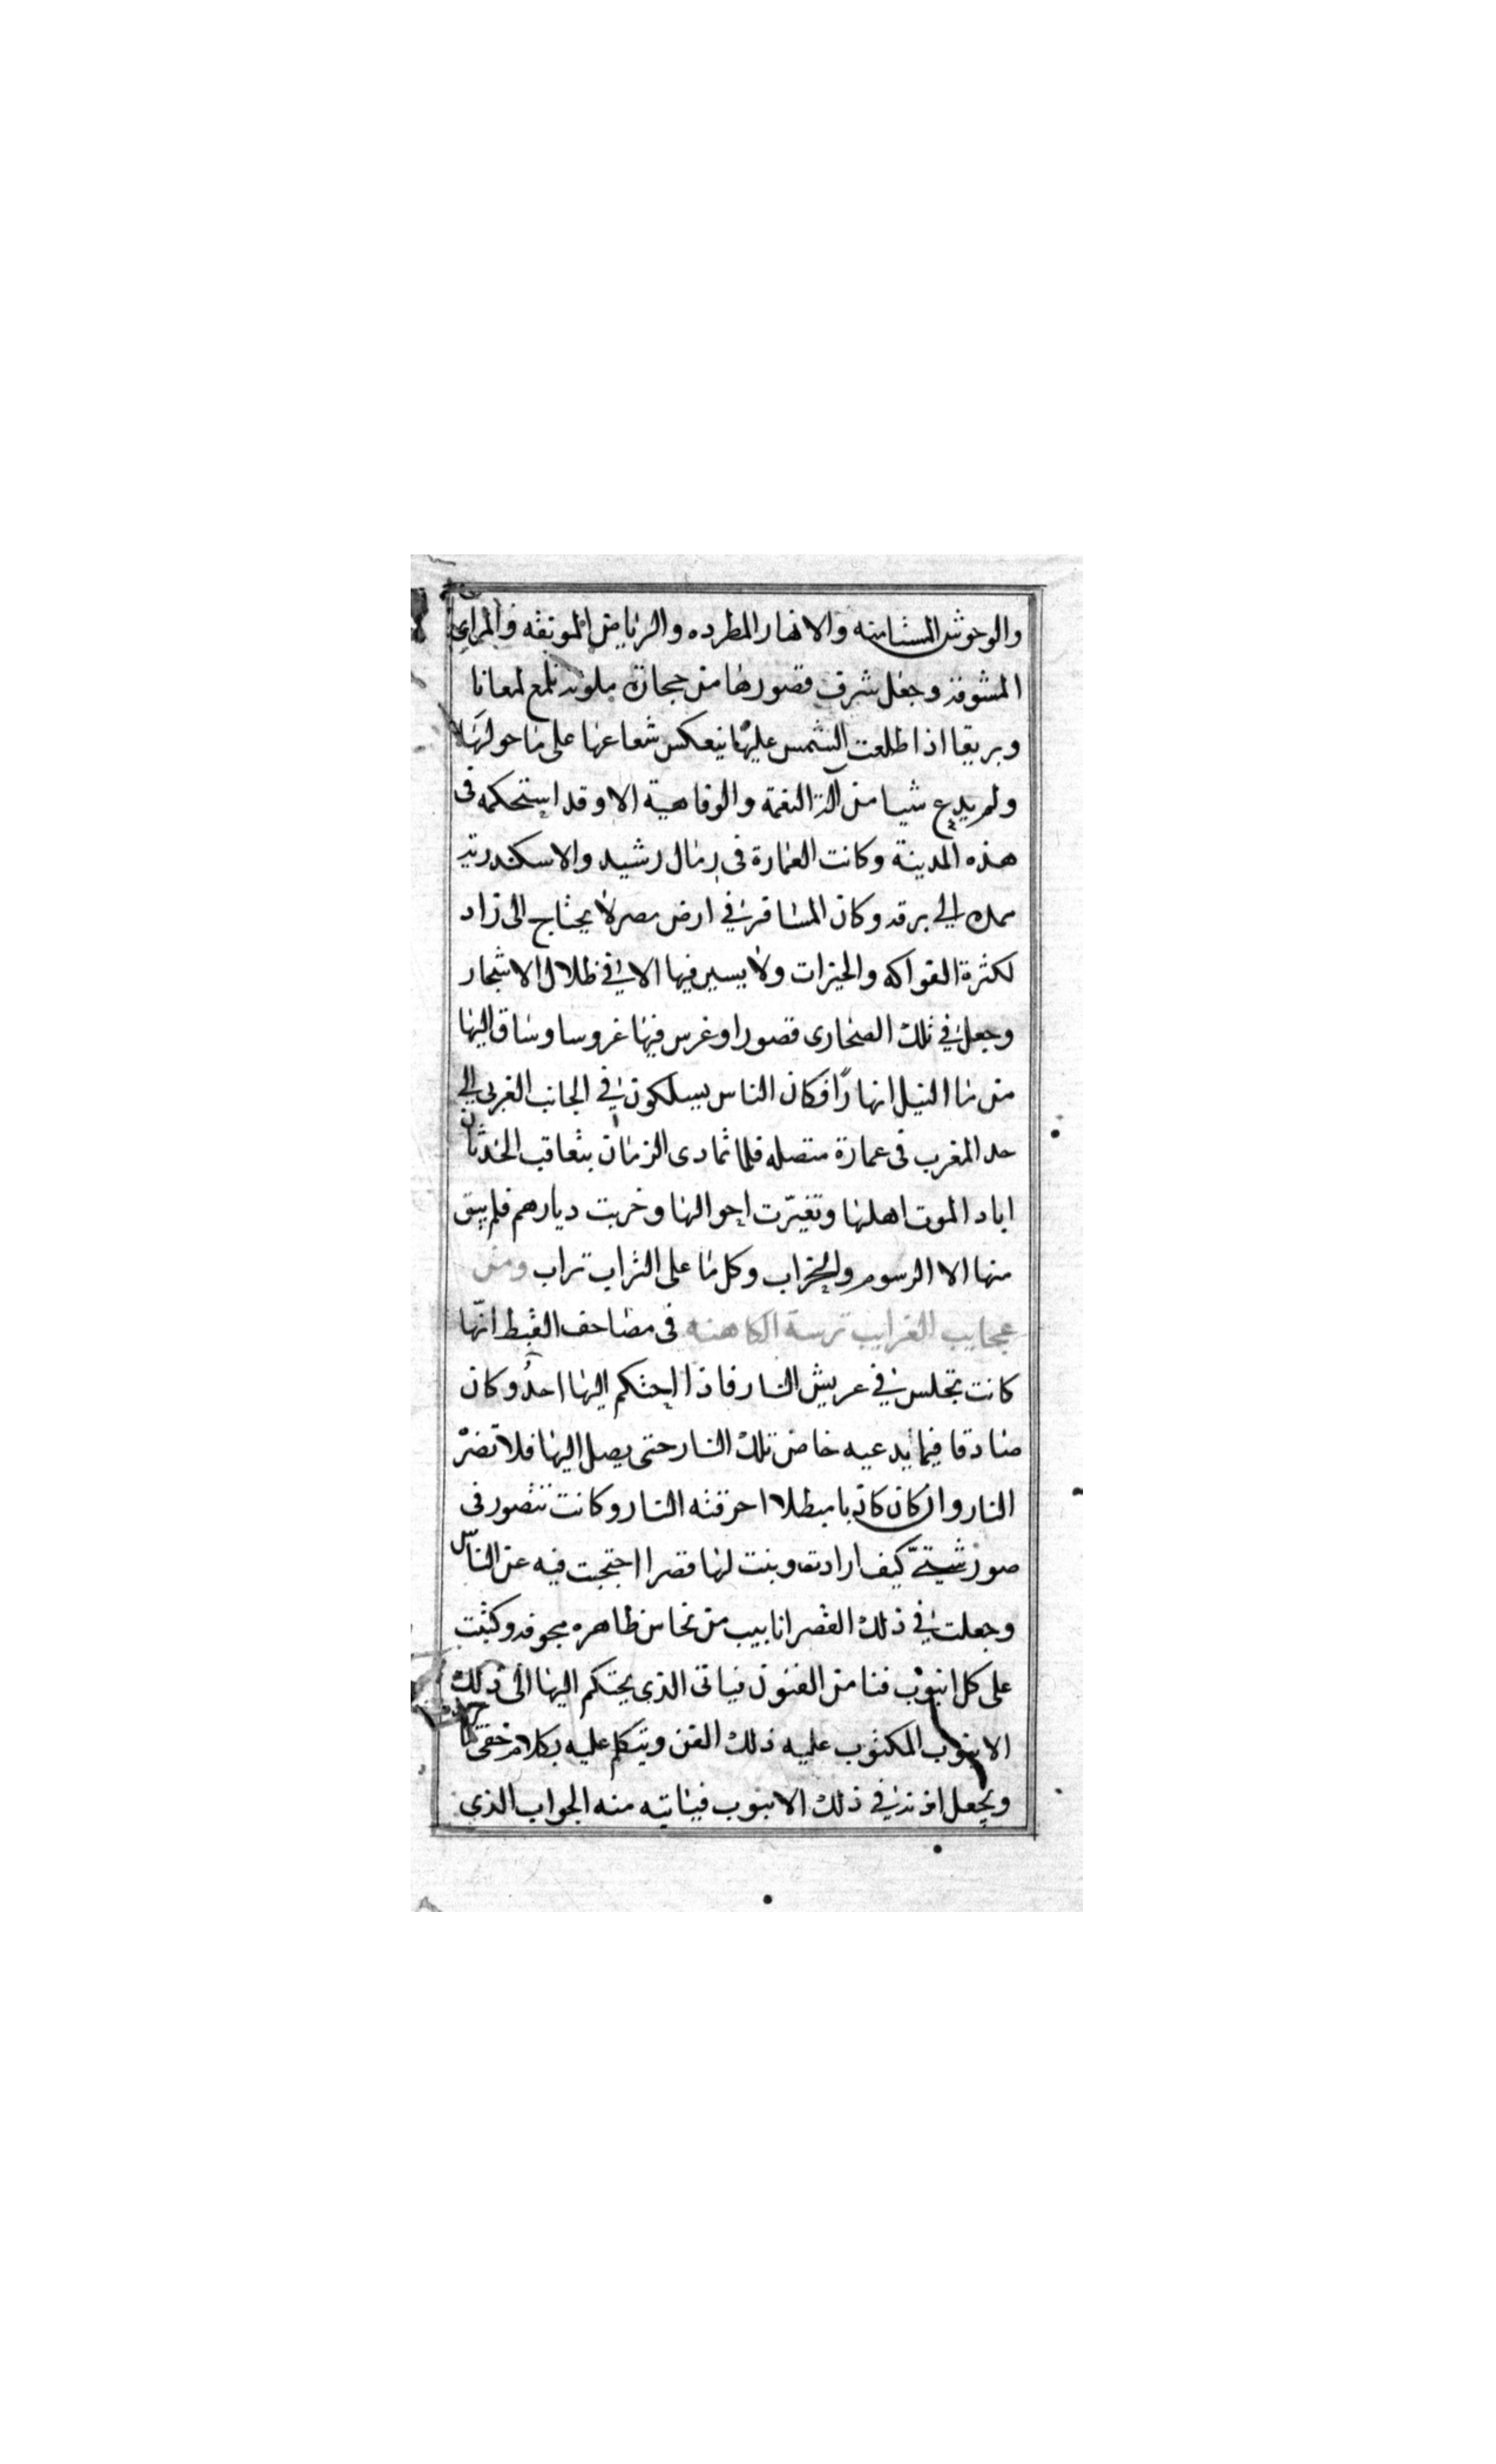 والوحوش المستانسه والانهار المطرده والرياض المونقه والمراي
المشوفة وجعل شرف قصورها من حجارة ملونة تلمع لمعانا
وبريقا اذا طلعت الشمس عليها ينعكس شعاعها على ما حولها
ولم يدع شيا من آلة النعمة والرفاهية الا وقد استحكمه فى
هذه المدينة وكانت العمارة فى رمال رشيد والاسكندرية
الي برقه وكان المسافر في ارض مصر لا يحتاج الى زاد
لكثرة الفواكه والخيرات ولا يسير فيها الا في ظلال الاشجار
وجعل في تلك الصحارى قصورا وغرس فيها غروسا وساق اليها
من ما النيل انهارًا فكان الناس يسلكون في الجانب الغربى الي
حد المغرب فى عمارة متصله فلما تمادى الزمان بتعاقب الحدثان
اباد الموت اهلها وتغيّرت احوالها وخربت ديارهم فلم يبق
منها الا الرسوم والخراب وكل ما على التراب تراب ومن
عجايب الغرايب ترسة الكاهنه فى مصاحف القبط انّها
كانت تجلس في عريش النار فاذا احتكم اليها احدٌ وكان
صادقا فيما يدعيه خاض تلك النار حتى يصل اليها فلا تضرّ
النار وان كان كان با مبطلا احرقته النار وكانت تتصور فى
صور شتىّ كيف ارادت وبنت لها قصرا احتجبت فيه عن الناس
وجعلت في ذلك القصر انابيب من نحاس ظاهره مجوفه وكتبت
على كل انبوب فنا من الفنون فياتى الذي يحتكم اليها الى ذلك
الانبوب المكتوب عليه ذلك الفن ويتكلم عليه بكلام خفى
ويجعل اذنه في ذلك الانبوب فياتيه منه الجواب الذي